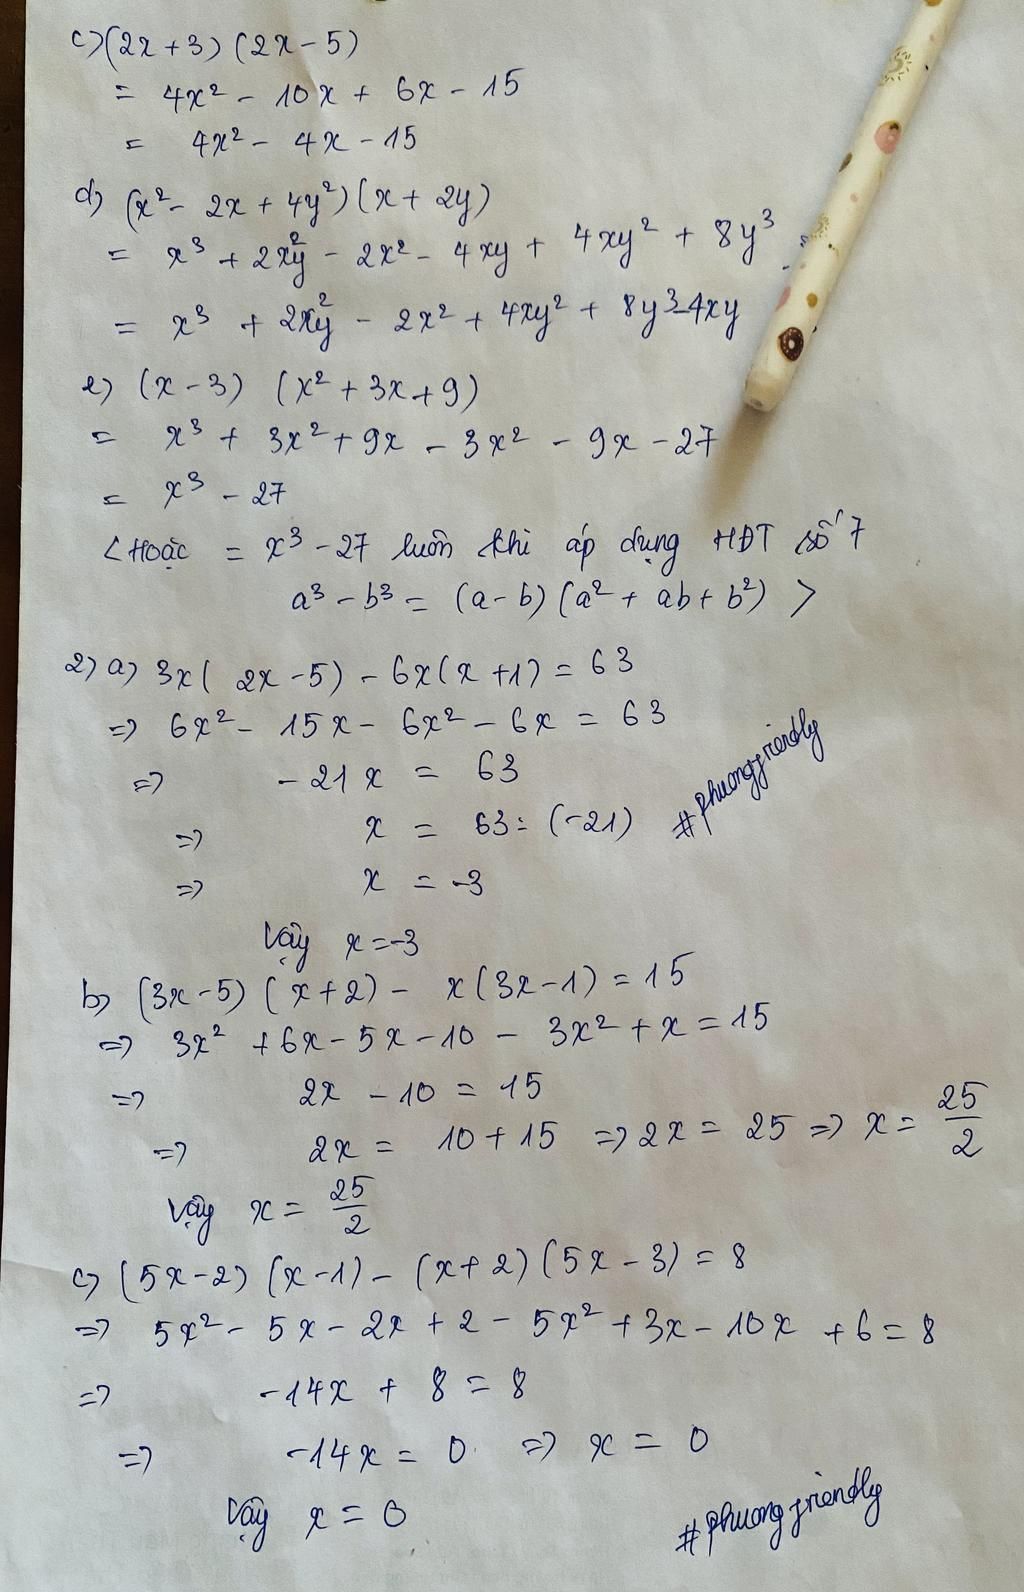 c) (2x + 3) (2x - 5)
= 4x² - 10x + 6x - 15
= 4x² - 4x - 15
d) (x² - 2x + 4y²) (x + 2y)
= x³ + 2x²y - 2x² - 4xy + 4xy² + 8y³
= x³ + 2x²y - 2x² + 4xy² + 8y³ - 4xy
e) (x - 3) (x² + 3x + 9)
= x³ + 3x² + 9x - 3x² - 9x - 27
= x³ - 27
< Hoặc = x³ - 27 luôn khi áp dụng HĐT số 7
a³ - b³ = (a - b) (a² + ab + b²) >
2) a) 3x( 2x - 5) - 6x(x + 1) = 63
=> 6x² - 15x - 6x² - 6x = 63
=> - 21x = 63
=> x = 63 : (-21)
=> x = -3
#phuongfriendly
Vậy x = -3
b) (3x - 5) (x + 2) - x(3x - 1) = 15
=> 3x² + 6x - 5x - 10 - 3x² + x = 15
=> 2x - 10 = 15
=> 2x = 10 + 15 => 2x = 25 => x = 25/2
Vậy x = 25/2
c) (5x - 2) (x - 1) - (x + 2) (5x - 3) = 8
=> 5x² - 5x - 2x + 2 - 5x² + 3x - 10x + 6 = 8
=> -14x + 8 = 8
=> -14x = 0 => x = 0
Vậy x = 0
#phuongfriendly